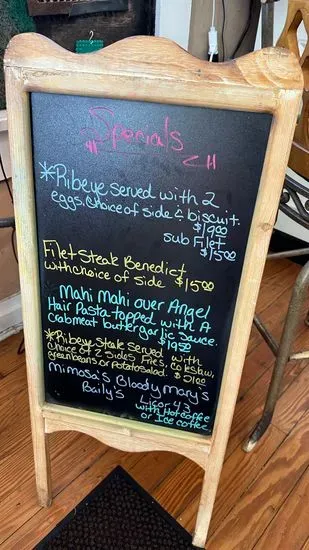 "Specials"
*Ribeye served with 2
eggs, Choice of side & biscuit.
$19.00
sub Filet
$15.00
Filet Steak Benedict
with choice of side $15.00
Mahi Mahi over Angel
Hair Pasta topped with A
crabmeat butter garlic sauce.
$19.50
*Ribeye Steak Served with
choice of 2 sides Fries, Coleslaw,
greenbeans or potato salad. $21.00
Mimosa's Bloody Mary's
Baily's Licor 43
with Hot coffee
or Ice coffee